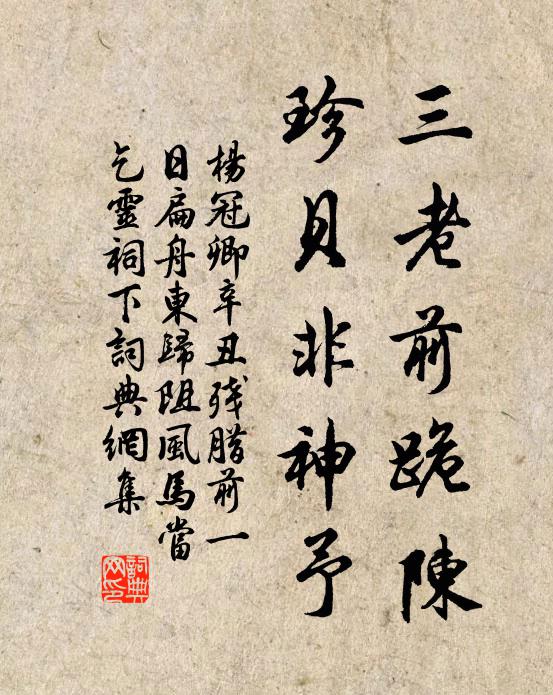 三老前跪陳
珍貝非神予
楊冠卿辛丑殘腊前一
日扁舟東歸阻風馬當
乞靈祠下詞典網集
詞典
网印